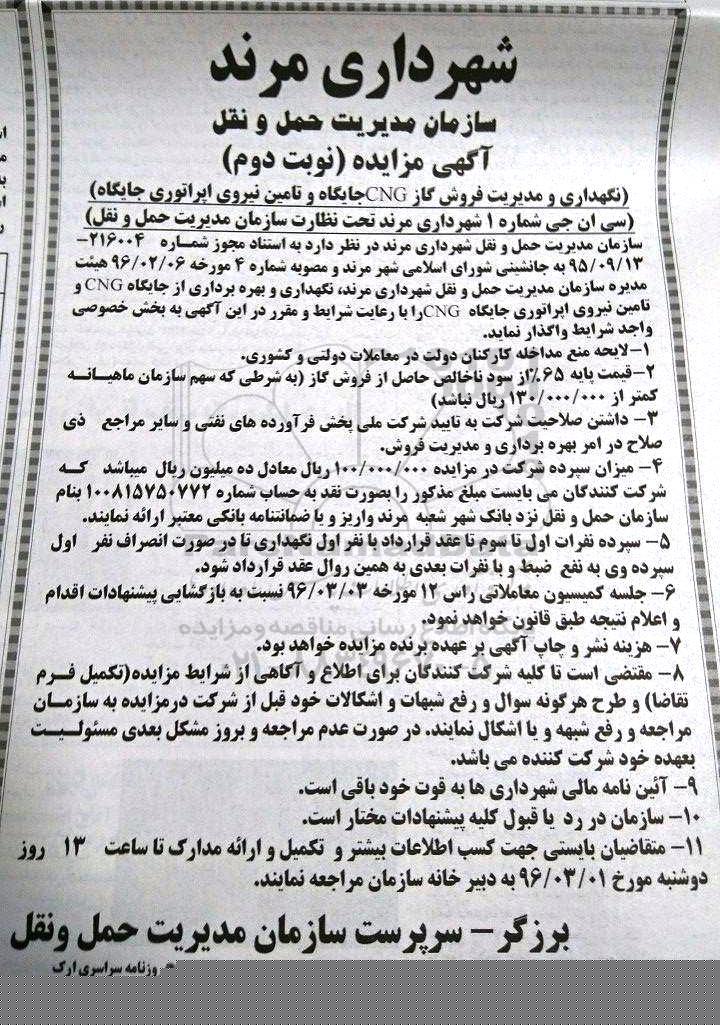 شهرداری مرند
سازمان مدیریت حمل و نقل
آگهی مزایده (نوبت دوم)
(نگهداری و مدیریت فروش گاز CNG جایگاه و تامین نیروی اپراتوری جایگاه)
(سی ان جی شماره ۱ شهرداری مرند تحت نظارت سازمان مدیریت حمل و نقل)
سازمان مدیریت حمل و نقل شهرداری مرند در نظر دارد به استناد مجوز شماره ۲۱۶۰۰۴-
۹۵/۰۹/۱۳ به جانشینی شورای اسلامی شهر مرند و مصوبه شماره ۴ مورخه ۹۶/۰۲/۰۶ هیئت
مدیره سازمان مدیریت حمل و نقل شهرداری مرند، نگهداری و بهره برداری از جایگاه CNG و
تامین نیروی اپراتوری جایگاه CNG را با رعایت شرایط و مقرر در این آگهی به بخش خصوصی
واجد شرایط واگذار نماید.
۱-لایحه منع مداخله کارکنان دولت در معاملات دولتی و کشوری.
۲-قیمت پایه ۶۵٪از سود ناخالص حاصل از فروش گاز (به شرطی که سهم سازمان ماهیانه
کمتر از ۱۳۰/۰۰۰/۰۰۰ ریال نباشد)
۳- داشتن صلاحیت شرکت به تایید شرکت ملی پخش فرآورده های نفتی و سایر مراجع ذی
صلاح در امر بهره برداری و مدیریت فروش.
۴- میزان سپرده شرکت در مزایده ۱۰۰/۰۰۰/۰۰۰ ریال معادل ده میلیون ریال میباشد که
شرکت کنندگان می بایست مبلغ مذکور را بصورت نقد به حساب شماره ۱۰۰۸۱۵۷۵۰۷۷۲ بنام
سازمان حمل و نقل نزد بانک شهر شعبه مرند واریز و یا ضمانتنامه بانکی معتبر ارائه نمایند.
۵- سپرده نفرات اول تا سوم تا عقد قرارداد با نفر اول نگهداری تا در صورت انصراف نفر اول
سپرده وی به نفع ضبط و با نفرات بعدی به همین روال عقد قرارداد شود.
۶- جلسه کمیسیون معاملاتی راس ۱۲ مورخه ۹۶/۰۳/۰۳ نسبت به بازگشایی پیشنهادات اقدام
و اعلام نتیجه طبق قانون خواهد نمود.
۷- هزینه نشر و چاپ آگهی بر عهده برنده مزایده خواهد بود.
۸- مقتضی است تا کلیه شرکت کنندگان برای اطلاع و آگاهی از شرایط مزایده(تکمیل فرم
تقاضا) و طرح هرگونه سوال و رفع شبهات و اشکالات خود قبل از شرکت درمزایده به سازمان
مراجعه و رفع شبهه و یا اشکال نمایند. در صورت عدم مراجعه و بروز مشکل بعدی مسئولیت
بعهده خود شرکت کننده می باشد.
۹- آئین نامه مالی شهرداری ها به قوت خود باقی است.
۱۰- سازمان در رد یا قبول کلیه پیشنهادات مختار است.
۱۱- متقاضیان بایستی جهت کسب اطلاعات بیشتر و تکمیل و ارائه مدارک تا ساعت ۱۳ روز
دوشنبه مورخ ۹۶/۰۳/۰۱ به دبیر خانه سازمان مراجعه نمایند.
برزگر - سرپرست سازمان مدیریت حمل ونقل
روزنامه سراسری ارک